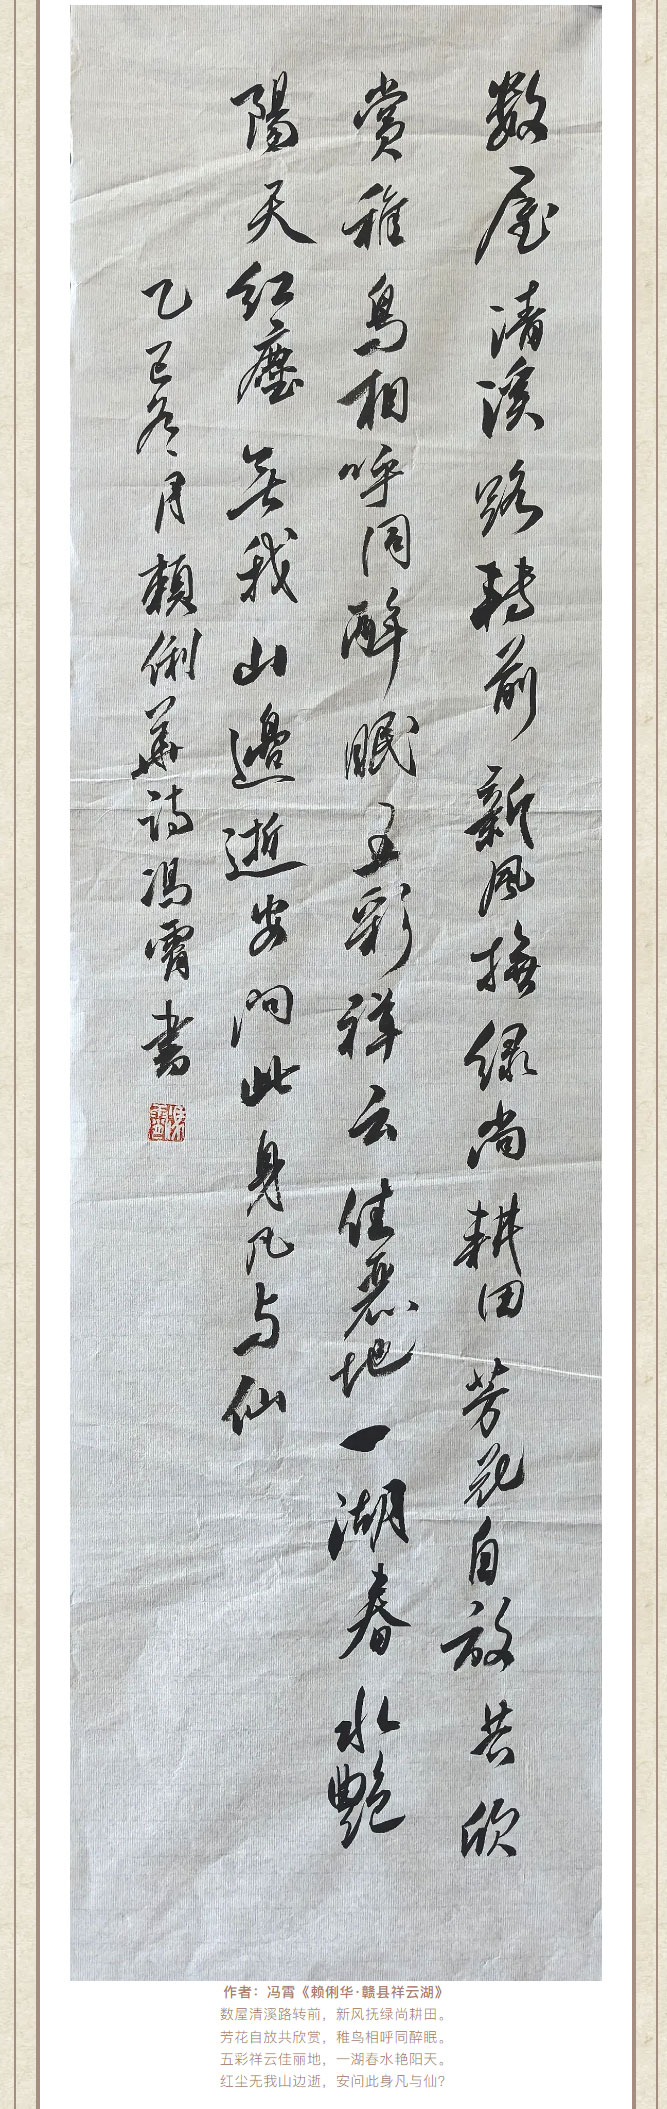 数屋清溪路轉前新风撫绿尚耕田芳花自放共欣
赏稚鸟相呼同醉眠五彩祥云佳丽地一湖春水艳
陽天红塵无我山邊逝安问此身凡与仙
乙巳冬月賴俐華诗冯霄書
作者：冯霄《赖俐华·赣县祥云湖》
数屋清溪路转前，新风抚绿尚耕田。
芳花自放共欣赏，稚鸟相呼同醉眠。
五彩祥云佳丽地，一湖春水艳阳天。
红尘无我山边逝，安问此身凡与仙？